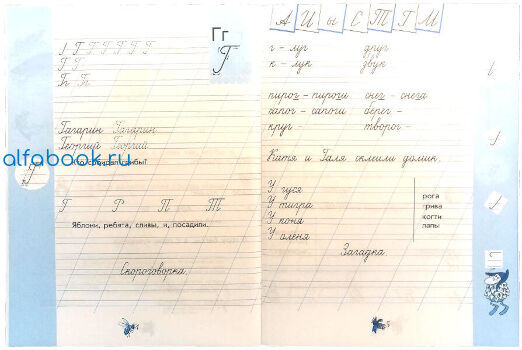 Гг
Г
Г Г Г Г Г Г Г
Г Г
Гг Гг
Гагарин Гагарин
Георгий Георгий
alfabook.ru
Кто собирал грибы?
Г
Г Р П Т
Яблони, ребята, сливы, и, посадили.
Скороговорка.
А И Ы С Т Г М
г – луг друг
к – лук двух
пирог – пироги снег – снега
сапог – сапоги берег –
круг – творог –
Катя и Галя склеили домик.
У гуся
У тигра
У коня
У оленя
рога
грива
когти
лапы
Загадка.